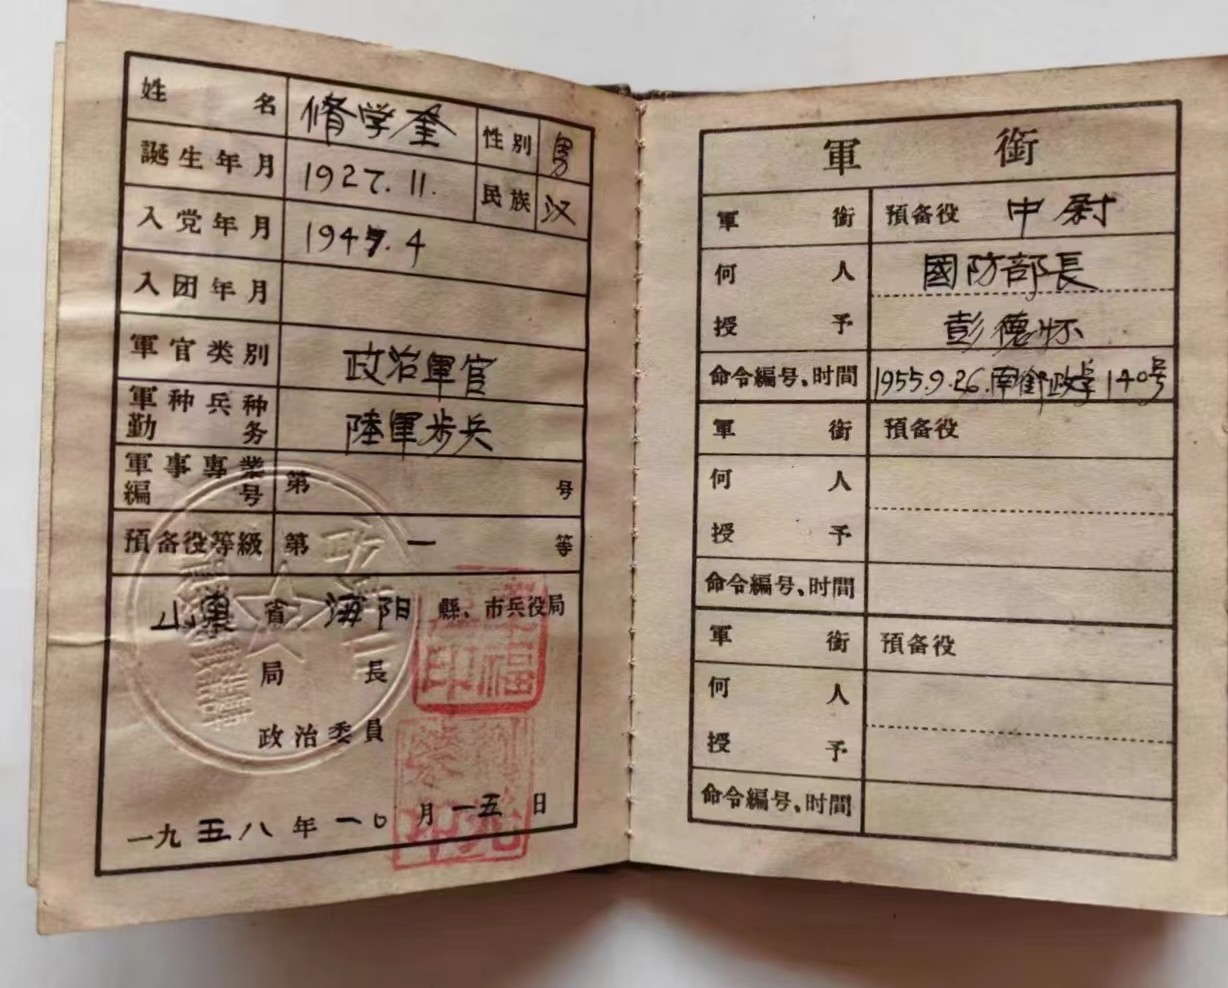 姓名 脩学奎 性別 男
誕生年月 1927.11. 民族 汉
入党年月 1947.4
入团年月
軍官类別 政治軍官
軍种兵种
勤务 陸軍步兵
軍事專業
編号 第 号
預备役等級 第 一 等
山東 省 海阳 縣、市兵役局
局長
政治委員
一九五八年一〇月一五日
軍銜
軍銜 預备役 中尉
何人 國防部長
授予 彭德怀
命令編号、时間 1955.9.26. 140号
軍銜 預备役
何人
授予
命令編号、时間
軍銜 預备役
何人
授予
命令編号、时間